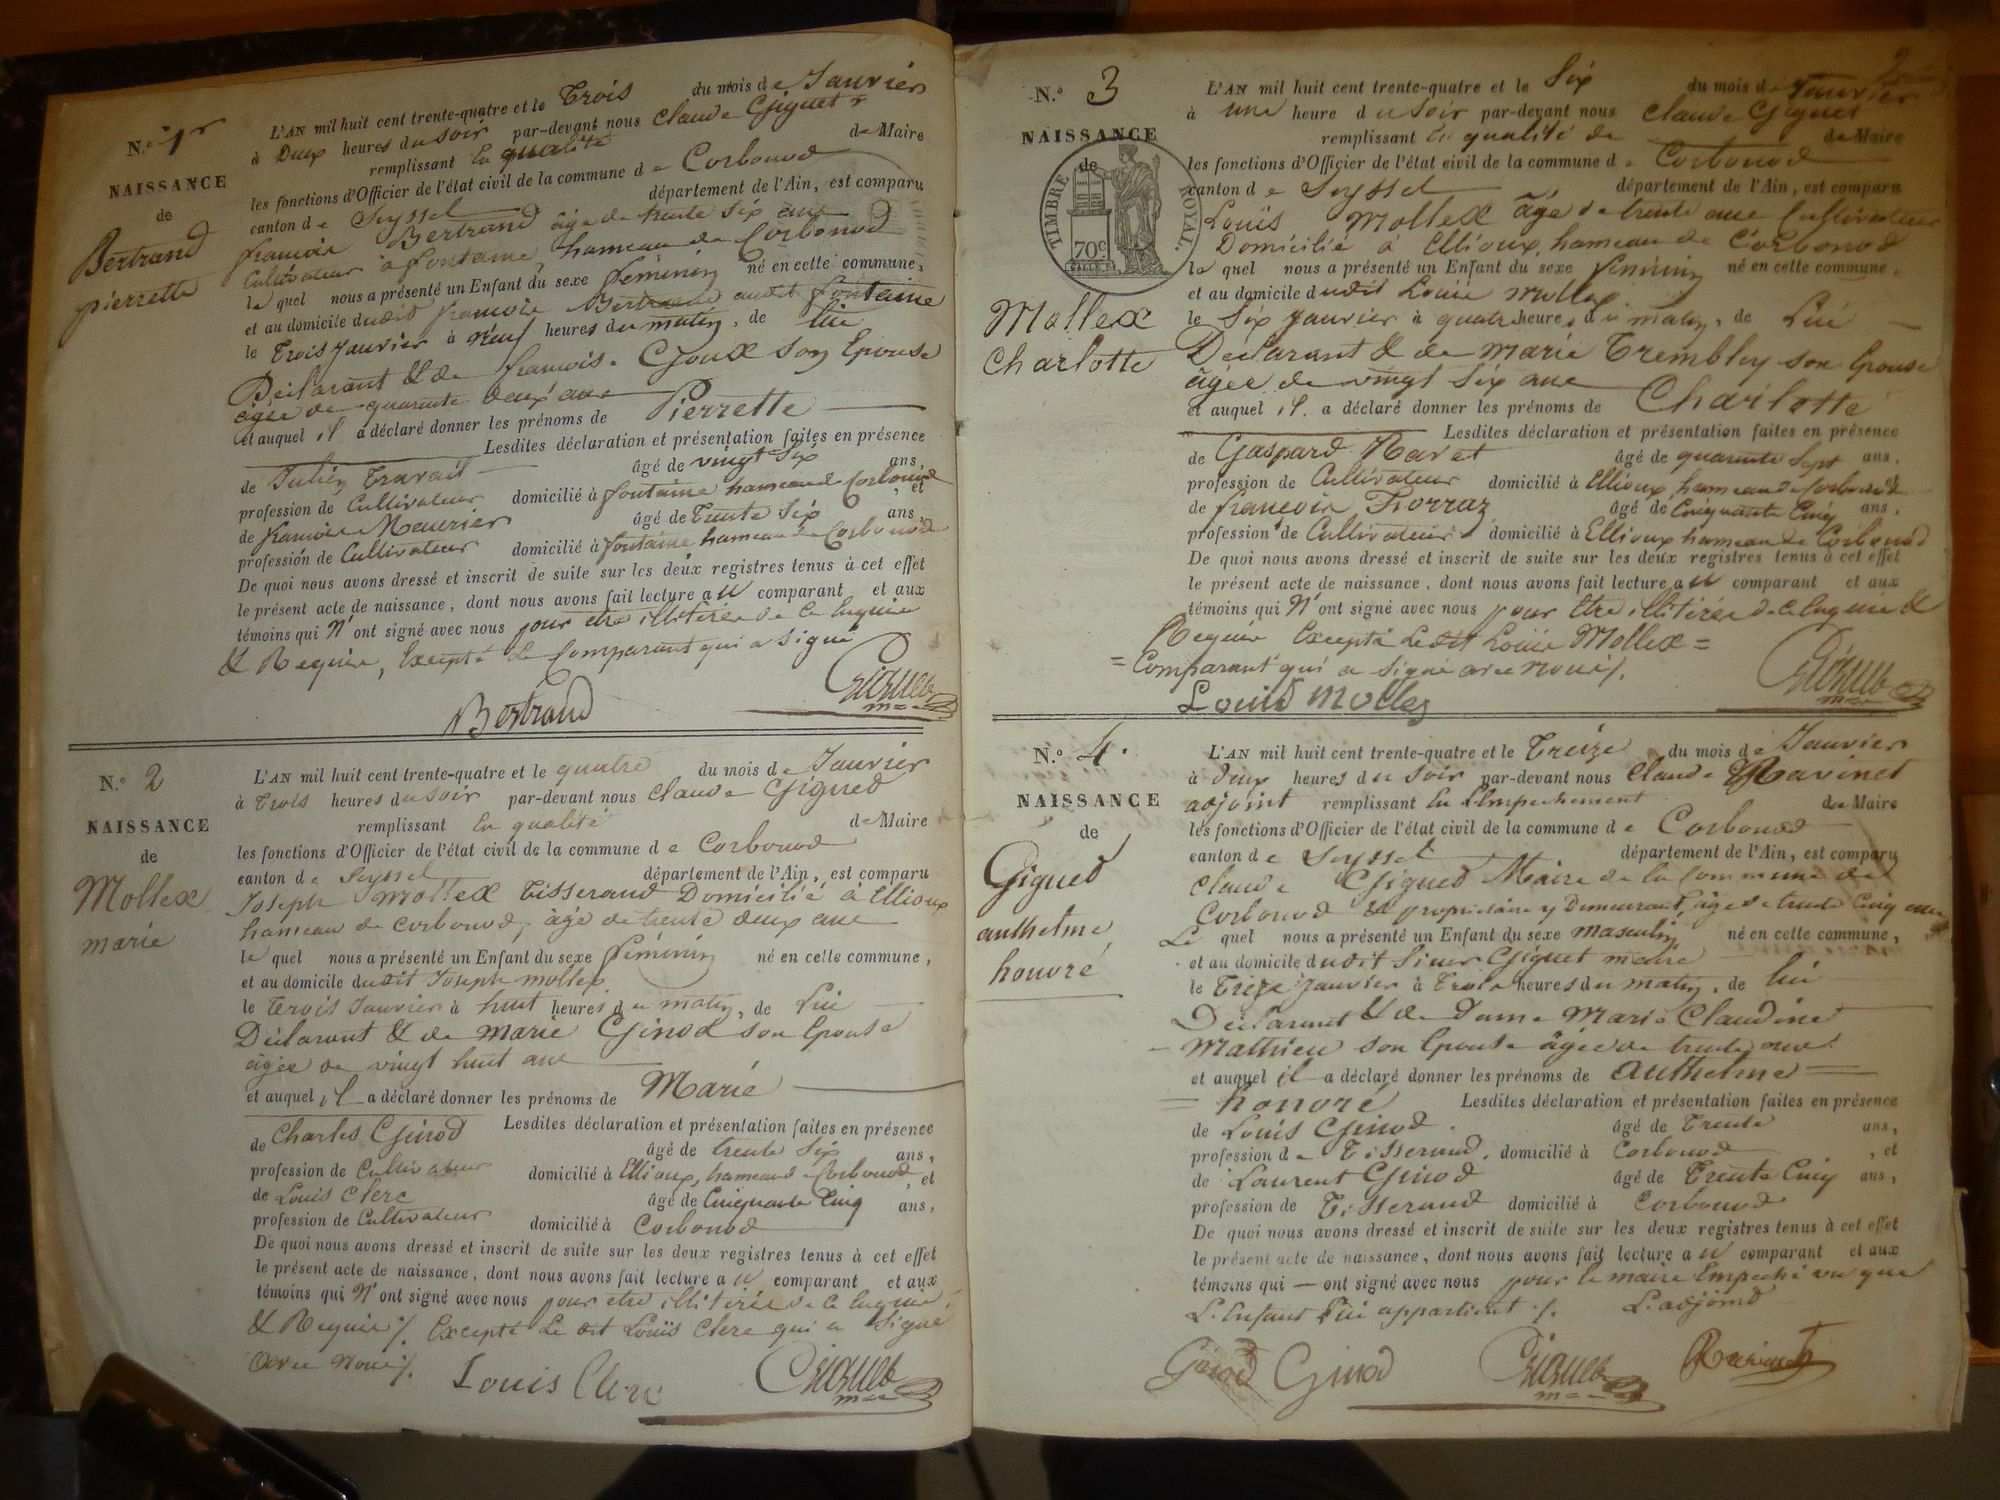 N.° 1r
NAISSANCE
de
Bertrand
pierrette
L'AN mil huit cent trente-quatre et le Trois du mois de Janvier
à Deux heures du soir par-devant nous Claude Giguet
remplissant en qualité de Maire
les fonctions d'Officier de l'état civil de la commune de Corbonod
canton de Seyssel département de l'Ain, est comparu
françois Bertrand âgé de trente six ans
Cultivateur à fontaine, hameau de Corbonod
le quel nous a présenté un Enfant du sexe féminin né en cette commune,
et au domicile dudit françois Bertrand audit fontaine
le Trois Janvier à Neuf heures du matin, de lui
Déclarant & de françoise Gjoux son Epouse
âgée de quarente deux ans
et auquel il a déclaré donner les prénoms de Pierrette
Lesdites déclaration et présentation faites en présence
de Julien Travail âgé de vingt Six ans,
profession de Cultivateur domicilié à fontaine hameau de Corbonod et
de françois Meurier âgé de Trente Six ans,
profession de Cultivateur domicilié à fontaine hameau de Corbonod
De quoi nous avons dressé et inscrit de suite sur les deux registres tenus à cet effet
le présent acte de naissance, dont nous avons fait lecture au comparant et aux
témoins qui N'ont signé avec nous pour etre illitirée de ce Enquie
& Requie, Excepté Le Comparant qui a signé
Bertrand
Giguet
m=
N.° 2
NAISSANCE
de
Mollex
marie
L'AN mil huit cent trente-quatre et le quatre du mois de Janvier
à Trois heures du soir par-devant nous Claude Gigued
remplissant en qualité de Maire
les fonctions d'Officier de l'état civil de la commune de Corbonod
canton de Seyssel département de l'Ain, est comparu
Joseph Mollex Tisserand Domicilié à Ellioux
hameau de Corbonod, âgé de trente deux ans
le quel nous a présenté un Enfant du sexe féminin né en cette commune,
et au domicile dudit Joseph mollex
le Terois Janvier à huit heures du matin, de Lui
Déclarant & de marie Ginod son Epouse
âgée de vingt huit ans
et auquel il a déclaré donner les prénoms de Marie
Lesdites déclaration et présentation faites en présence
de Charles Ginod âgé de trente Six ans,
profession de Cultivateur domicilié à Ellioux, hameau de Corbonod, et
de Louis Clerc âgé de Cinquante Cinq ans,
profession de Cultivateur domicilié à Corbonod
De quoi nous avons dressé et inscrit de suite sur les deux registres tenus à cet effet
le présent acte de naissance, dont nous avons fait lecture au comparant et aux
témoins qui N'ont signé avec nous pour etre illitirée de ce Enquie
& Requie ./. Excepté Le dit Louis Clerc qui a Signé
avec nous ./.
Louis Clerc
Giguet
m=
2
N.° 3
NAISSANCE
de
TIMBRE ROYAL.
70c
Mollex
Charlotte
L'AN mil huit cent trente-quatre et le Six du mois de Janvier
à une heure du soir par-devant nous Claude Giguet
remplissant en qualité de de Maire
les fonctions d'Officier de l'état civil de la commune de Corbonod
canton de Seyssel département de l'Ain, est comparu
Louis Mollex âgé de trente ans Cultivateur
Domicilié à Ellioux, hameau de Corbonod
le quel nous a présenté un Enfant du sexe féminin né en cette commune,
et au domicile dudit Louis Mollex
le Six Janvier à quatre heures du matin, de Lui
Déclarant & de Marie Trembley son Epouse
âgée de vingt Six ans
et auquel il a déclaré donner les prénoms de Charlotte
Lesdites déclaration et présentation faites en présence
de Gaspard Navet âgé de quarente Sept ans.
profession de Cultivateur domicilié à Ellioux, hameau de Corbonod
de françois Forraz âgé de Cinquante Cinq ans.
profession de Cultivateur domicilié à Ellioux hameau de Corbonod
De quoi nous avons dressé et inscrit de suite sur les deux registres tenus à cet effet
le présent acte de naissance, dont nous avons fait lecture au comparant et aux
témoins qui N'ont signé avec nous pour Etre illitirée de ce Enquie &
Requie Excepté Le dit Louis Mollex =
= Comparant qui a signé avec nous ./.
Louis Mollex
Giguet
m=
N.° 4.
NAISSANCE
de
Gigued
anthelme,
honoré
L'AN mil huit cent trente-quatre et le Treize du mois de Janvier
à Deux heures du soir par-devant nous Claude Ravinet
adjoint remplissant en l'Empechement de Maire
les fonctions d'Officier de l'état civil de la commune de Corbonod
canton de Seyssel département de l'Ain, est comparu
Claude Gigued Maire de la Commune de
Corbonod & propriétaire y Demeurant, âgé de trente Cinq ans
Le quel nous a présenté un Enfant du sexe masculin né en cette commune,
et au domicile dudit Sieur Giguet maire
le Treize Janvier à Trois heures du matin, de lui
Déclarant & de Dame Marie Claudine
Mathieu son Epouse âgée de trente ans
et auquel il a déclaré donner les prénoms de Anthelme
= honoré Lesdites déclaration et présentation faites en présence
de Louis Ginod âgé de Trente ans,
profession de Tisserand, domicilié à Corbonod, et
de Laurent Ginod âgé de Trente Cinq ans,
profession de Tisserand domicilié à Corbonod
De quoi nous avons dressé et inscrit de suite sur les deux registres tenus à cet effet
le présent acte de naissance, dont nous avons fait lecture au comparant et aux
témoins qui — ont signé avec nous pour le maire Empeché vu que
L'Enfant Lui appartient ./. L'adjoind
Ginod Ginod Giguet Ravinet
m=